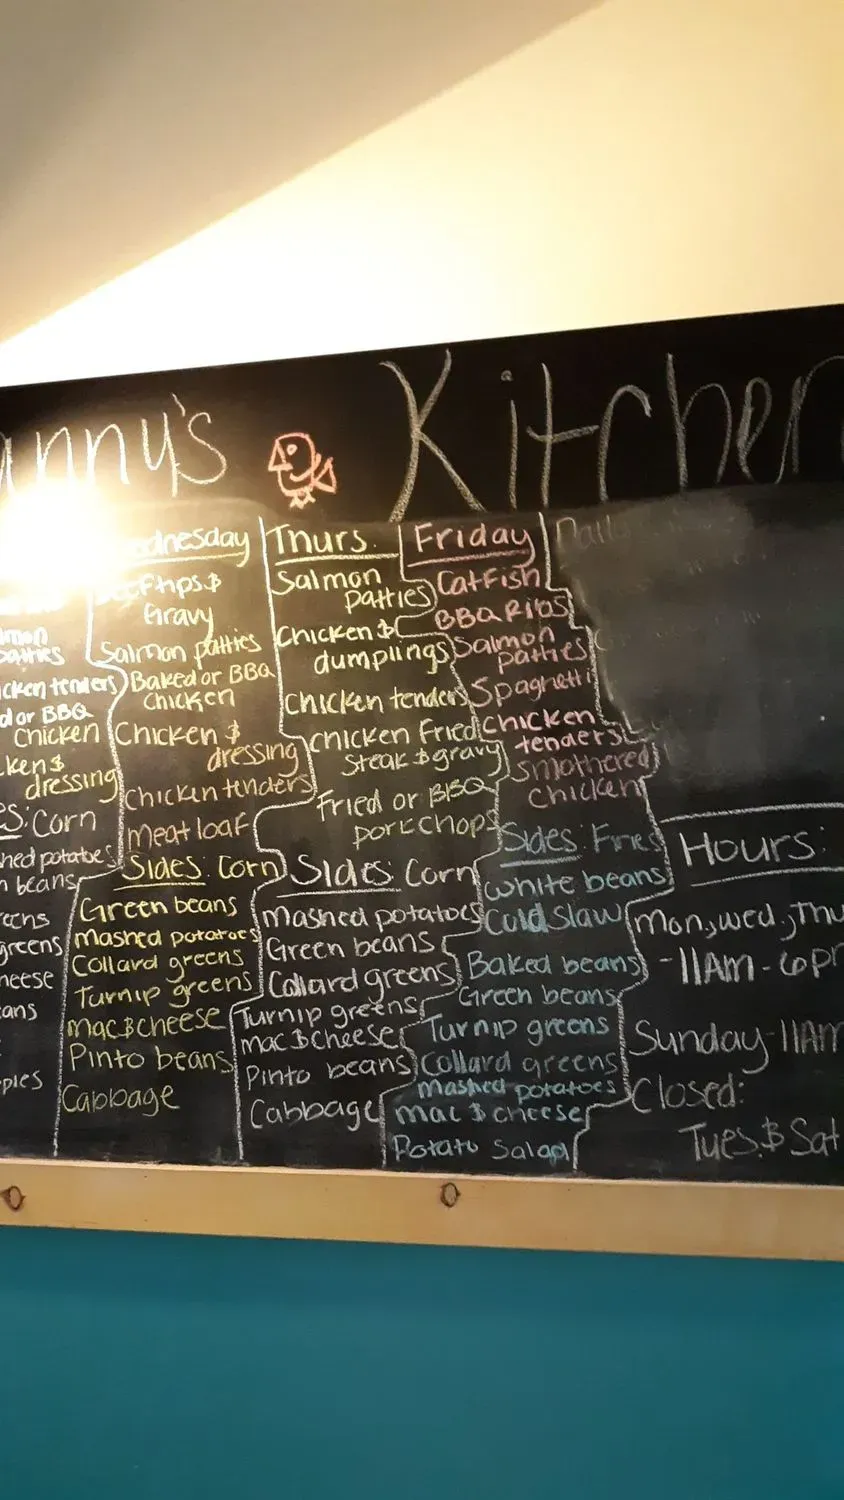 anny's Kitchen
patties
cken tenders
d or BBQ
chicken
ken $
dressing
Corn
hed potatoes
n beans
eens
greens
heese
ans
ples
ednesday
tips $
Gravy
Salmon patties
Baked or BBQ
chicken
Chicken $
dressing
Chicken tenders
meat loaf
Sides: Corn
Green beans
Mashed potatoes
Collard greens
Turnip greens
mac $ cheese
Pinto beans
Cabbage
Thurs.
Salmon
patties
Chicken $
dumplings
Chicken tenders
Chicken Fried
Steak $ gravy
Fried or BBQ
porkchops
Sides: Corn
Mashed potatoes
Green beans
Collard greens
Turnip greens
mac $ cheese
Pinto beans
Cabbage
Friday
Catfish
BBQ Ribs
Salmon
patties
Spaghetti
Chicken
tenders
Smothered
chicken
Sides: Fries
White beans
Cold Slaw
Baked beans
Green beans
Turnip greens
Collard greens
Mashed potatoes
mac $ cheese
Potato Salad
Hours:
Mon., Wed., Thu
- 11AM - 6p
Sunday - 11AM
Closed:
Tues. $ Sat